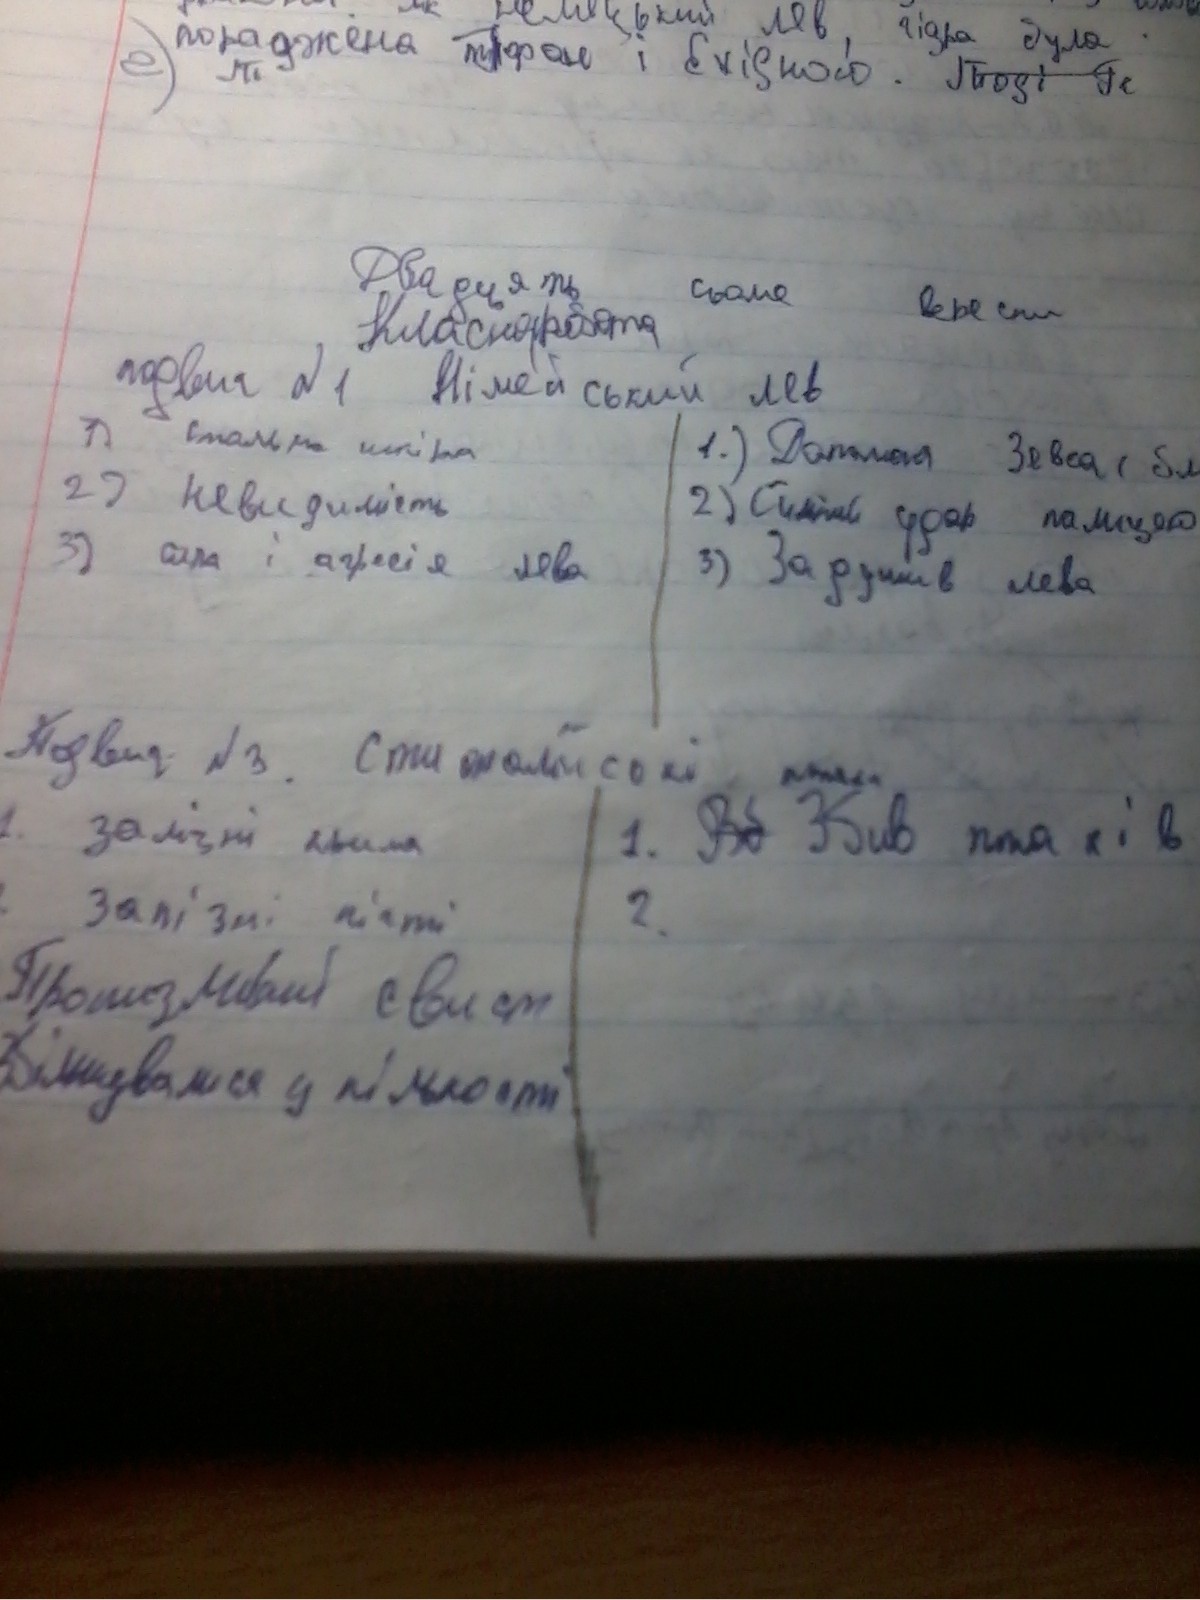 лев, гідра була
е) пораджена тіфон і Єхідною. Тоді Ге
Двадцять сьоме вересня
Класна робота
подвиг №1 Німейський лев
1) стальна шкіра
2) Невидимість
3) сила і агресія лева
1.) Допомога Зевса і бл
2) Сильний удар палицею
3) Задушив лева
Подвиг №3. Стимфалійсокі птахи
1. залізні крила
2. Залізні кігті
Пронизливий свист
Більшувалися у кількості
1. Вб Бив птахів
2.